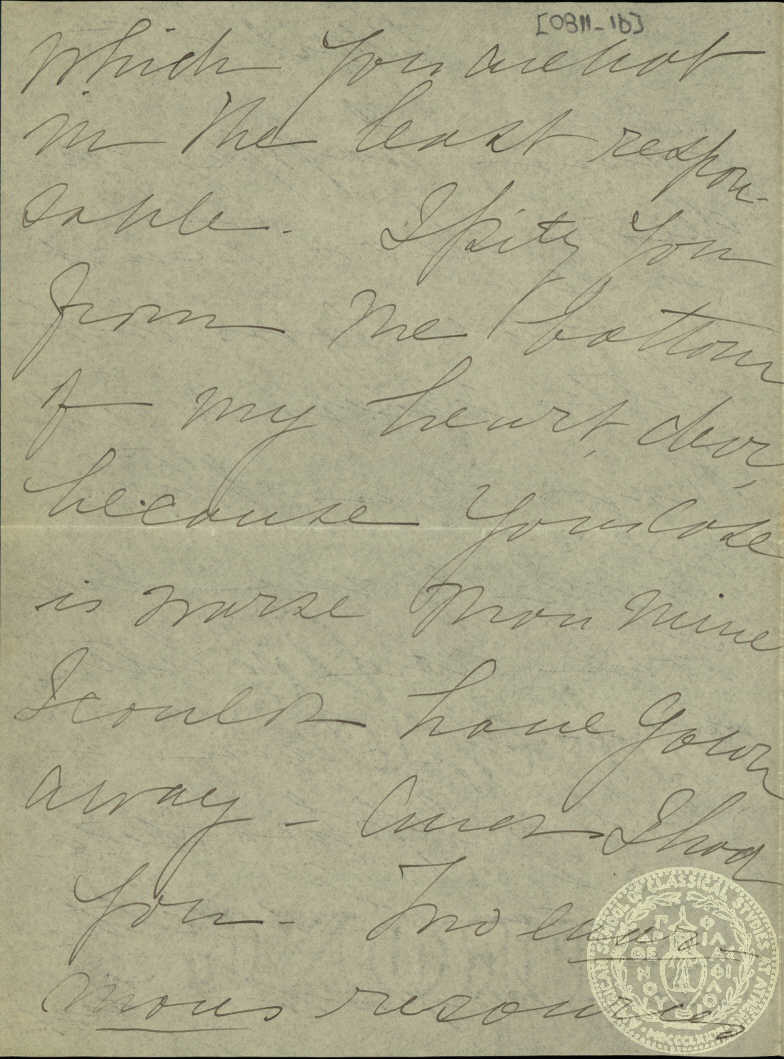 [0811-1b]
which you are not
in the least respon-
sable. I pity you
from the bottom
of my heart, dear,
because your case
is worse than mine
I could have gown
away - And I had
you - Two enor-
mous resources
AMERICAN SCHOOL OF CLASSICAL STUDIES AT ATHENS
MDCCCLXXXI